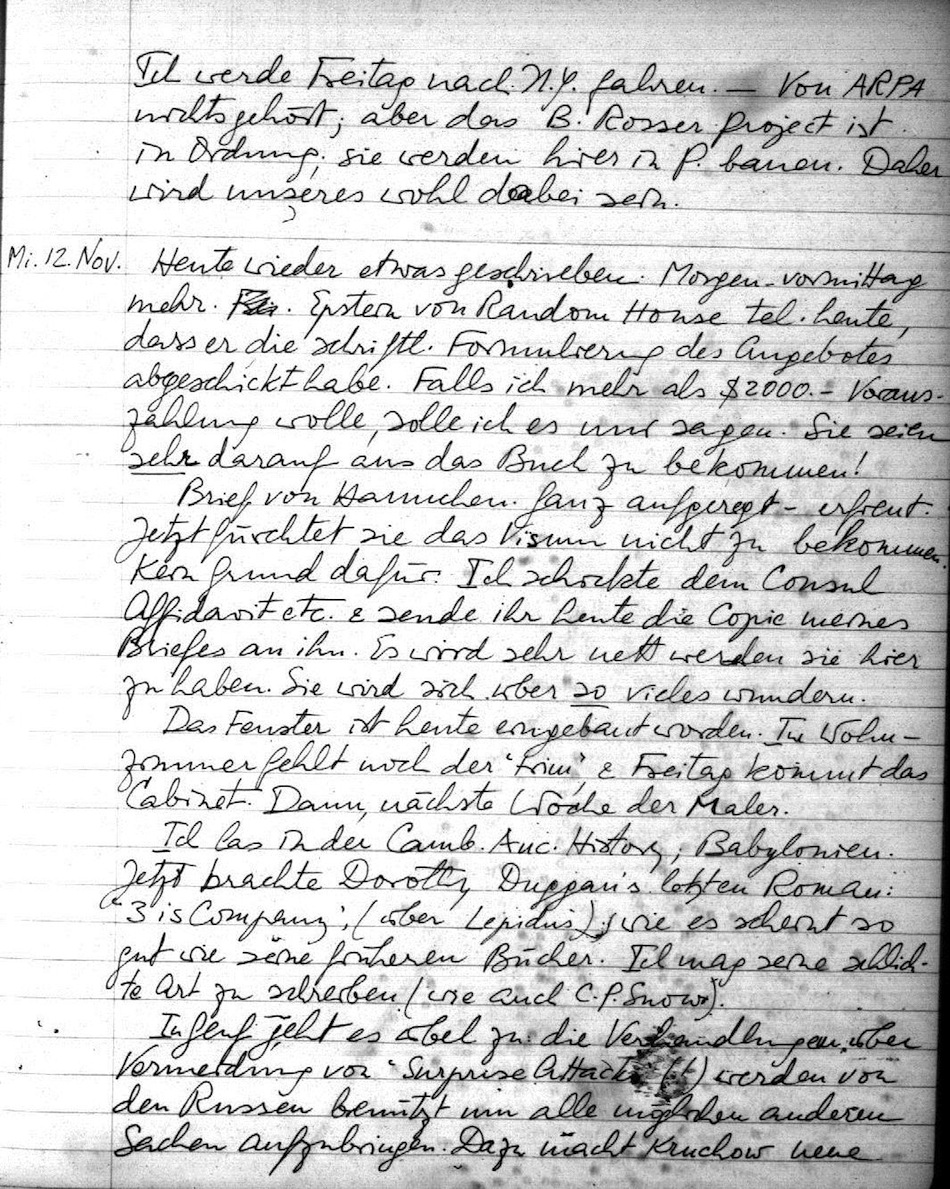 Ich werde Freitag nach N.Y. fahren. — Von ARPA
nichts gehört; aber das B. Rosser project ist
in Ordnung; sie werden hier in P. bauen. Daher
wird unseres wohl dabei sein.
Mi. 12. Nov. Heute wieder etwas geschrieben. Morgen vormittag
mehr. Epstein von Random House tel. heute,
dass er die schriftl. Formulierung des Angebotes
abgeschickt habe. Falls ich mehr als $2000.- Voraus-
zahlung wolle, solle ich es nur sagen. Sie seien
sehr darauf aus das Buch zu bekommen!
Brief von Hannchen. Ganz aufgeregt - erfreut.
Jetzt fürchtet sie das Visum nicht zu bekommen.
Kein Grund dafür. Ich schickte dem Consul
Affidavit etc. & sende ihr heute die Copie meines
Briefes an ihn. Es wird sehr nett werden sie hier
zu haben. Sie wird sich über so vieles wundern.
Das Fenster ist heute eingebaut worden. Im Wohn-
zimmer fehlt noch der "trim" & Freitag kommt das
Cabinet. Dann, nächste Woche der Maler.
Ich las in der Camb. Anc. History, Babylonien.
Jetzt brachte Dorothy Duggan's letzten Roman:
"3 is Company", (über Lepidus); wie es scheint so
gut wie seine früheren Bücher. Ich mag seine schlich-
te Art zu schreiben (wie auch C.P. Snow).
In Genf geht es übel zu: die Verhandlungen über
Vermeidung von "Surprise Attack" werden von
den Russen benützt um alle möglichen anderen
Sachen aufzubringen. Dazu macht Kruchow neue